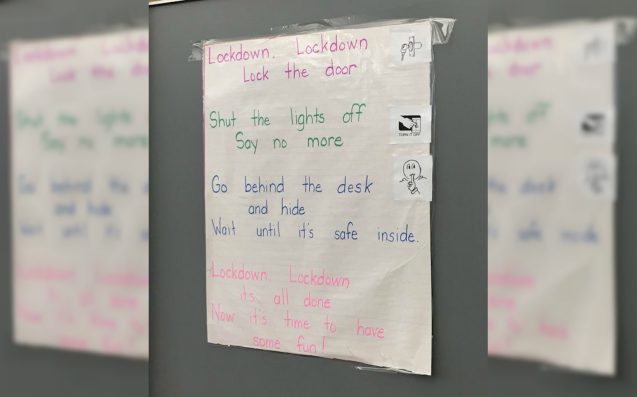 Lockdown, Lockdown
Lock the door
Shut the lights off
Say no more
Go behind the desk
and hide
Wait until it's safe inside.
Lockdown Lockdown
it's all done
Now it's time to have
some fun!
TURN IT OFF